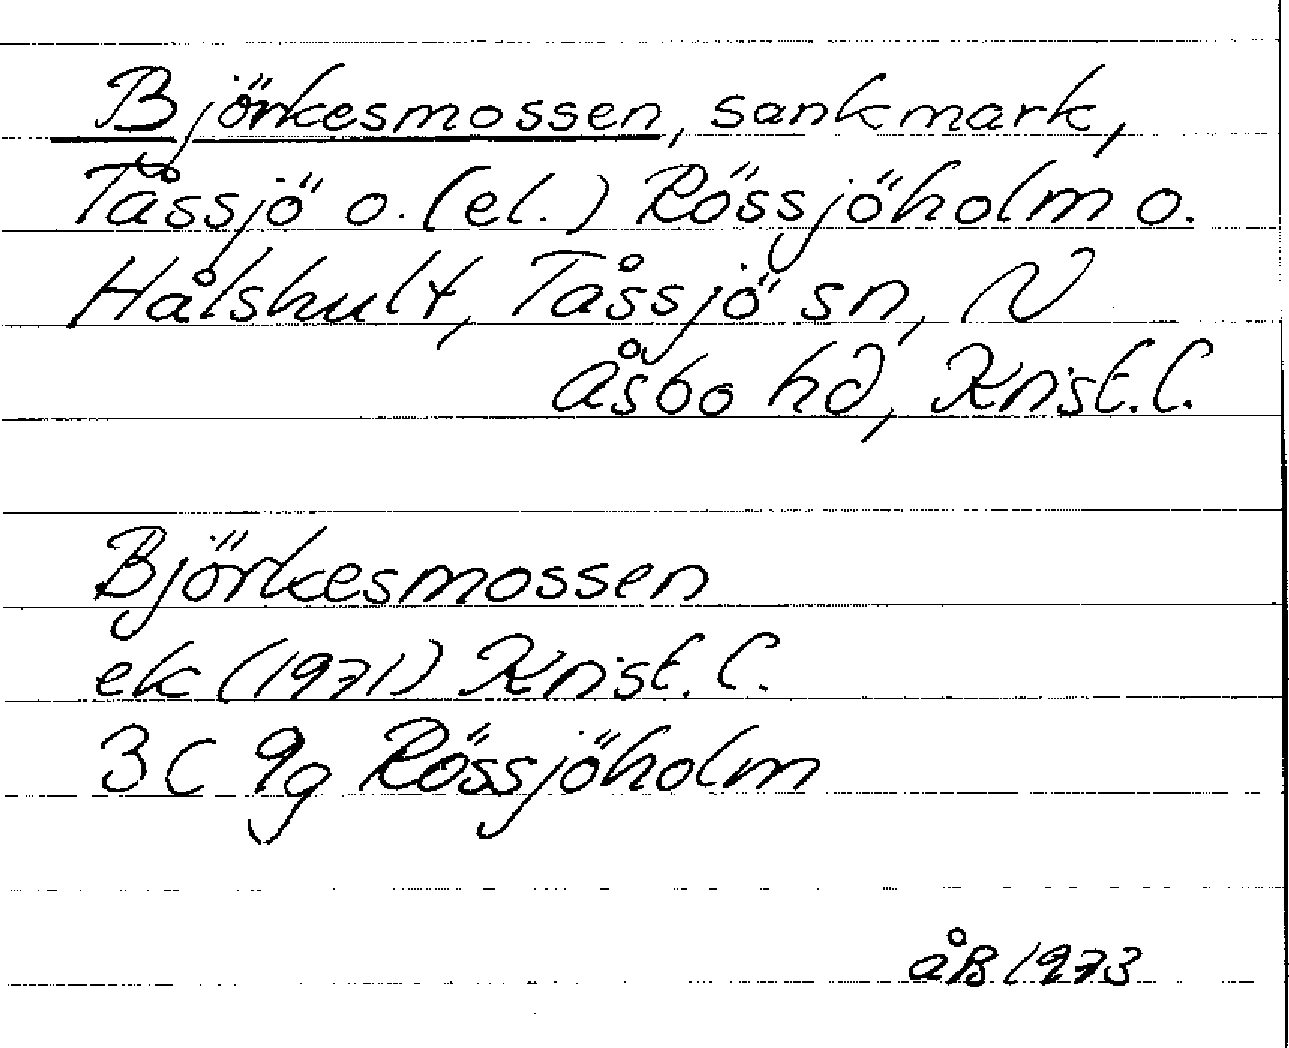 Björkesmossen, sankmark,
Tåssjö o. (el.) Rössjöholm o.
Hålshult, Tåssjö sn, N
Åsbo hd, Krist. l.
Björkesmossen
ek (1971) Krist. l.
3C 9g Rössjöholm
åB 1973